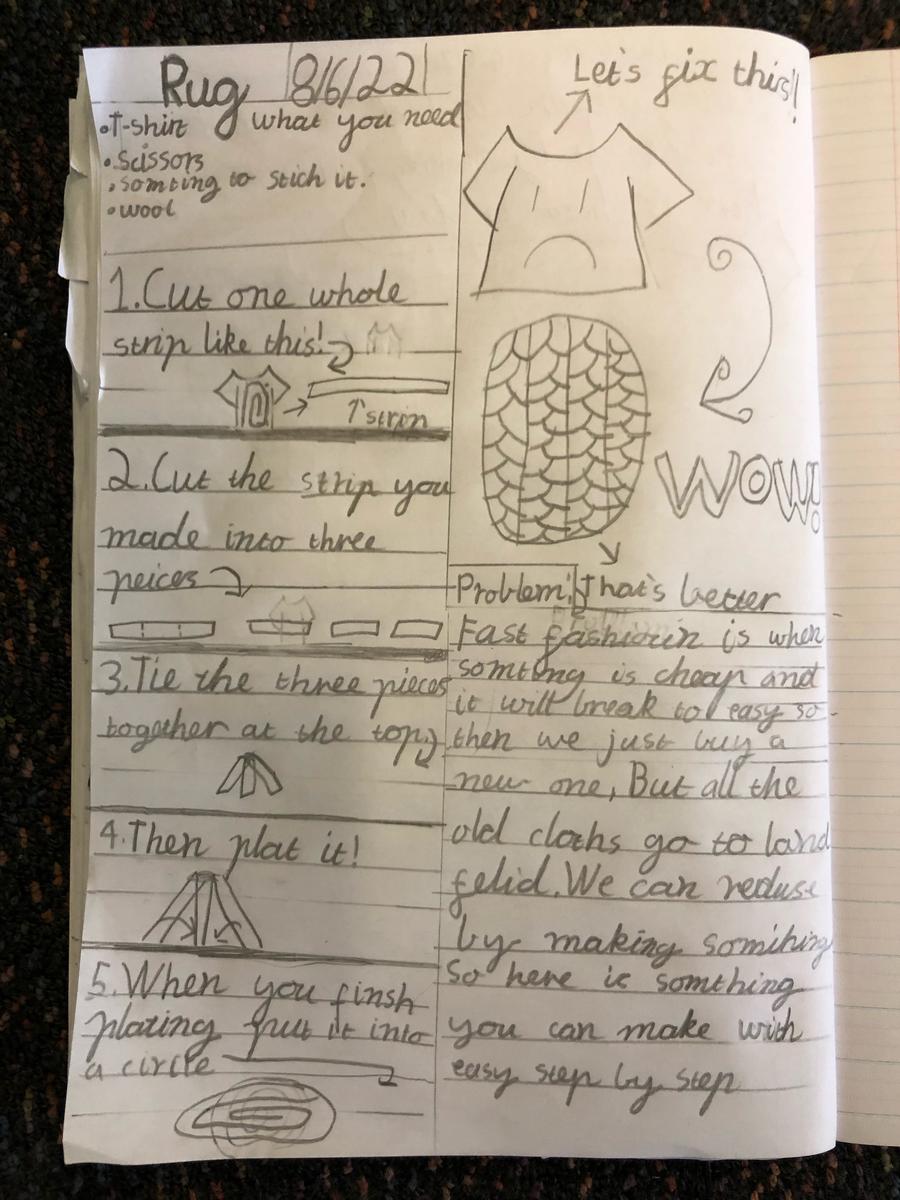 Rug 8/6/22
what you need
•T-shirt
•scissors
•somting to stich it.
•wool
1.Cut one whole
strip like this!
↑strip
2.Cut the strip you
made into three
peices
3.Tie the three pieces
together at the top
4.Then plat it!
5.When you finsh
plating put it into
a circle
Let's fix this!!
WOW!
That's better
Problem:
Fast fashioin is when
somting is cheap and
it will break to easy so
then we just buy a
new one, But all the
old cloths go to land
felid. We can reduse
by making somihing
So here is something
you can make with
easy step by step